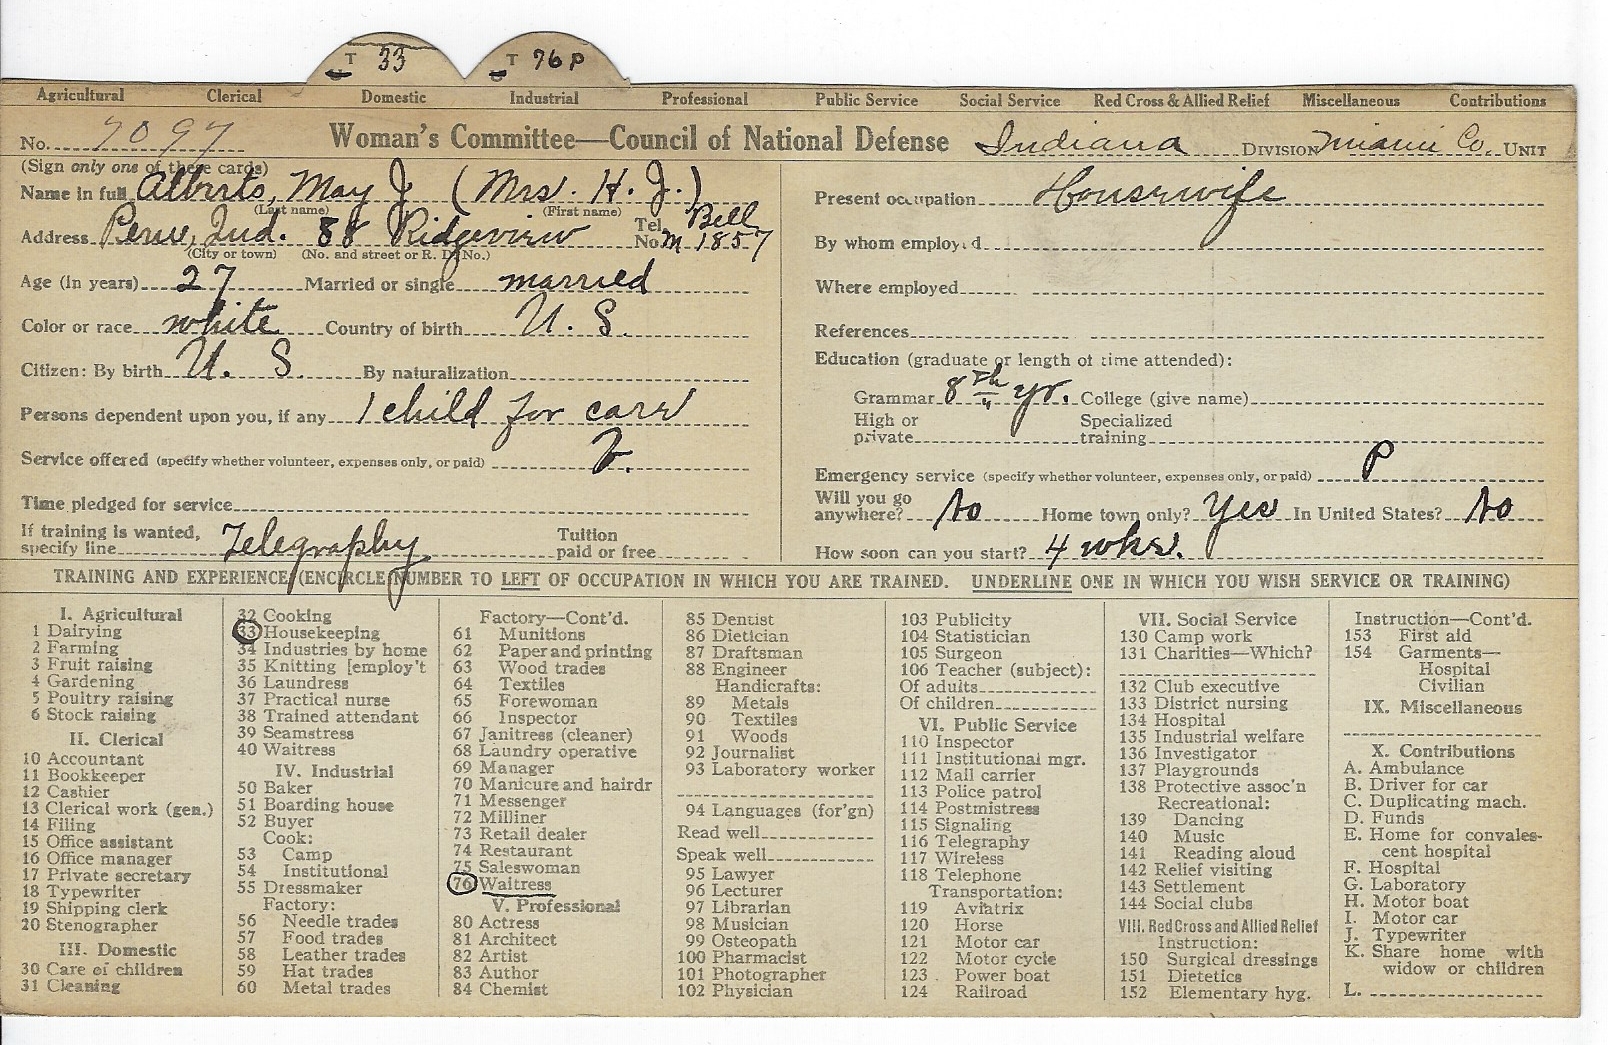 T 33 T 76 P
Agricultural Clerical Domestic Industrial Professional Public Service Social Service Red Cross & Allied Relief Miscellaneous Contributions
No. 7097 Woman's Committee—Council of National Defense Indiana DIVISION Miami Co. UNIT
(Sign only one of these cards)
Name in full Alberts, May J (Mrs. H. J.)
(Last name) (First name)
Address Peru, Ind. 88 Ridgeview Tel. No. Bell M 1857
(City or town) (No. and street or R. D. No.)
Age (in years) 27 Married or single married
Color or race white Country of birth U. S.
Citizen: By birth U. S. By naturalization
Persons dependent upon you, if any 1 child for care
Service offered (specify whether volunteer, expenses only, or paid) V.
Time pledged for service
If training is wanted, specify line Telegraphy Tuition paid or free
Present occupation Housewife
By whom employed
Where employed
References
Education (graduate or length of time attended):
Grammar 8th yr. College (give name)
High or private Specialized training
Emergency service (specify whether volunteer, expenses only, or paid) P
Will you go anywhere? No Home town only? Yes In United States? No
How soon can you start? 4 whs.
TRAINING AND EXPERIENCE (ENCIRCLE NUMBER TO LEFT OF OCCUPATION IN WHICH YOU ARE TRAINED. UNDERLINE ONE IN WHICH YOU WISH SERVICE OR TRAINING)
I. Agricultural
1 Dairying
2 Farming
3 Fruit raising
4 Gardening
5 Poultry raising
6 Stock raising
II. Clerical
10 Accountant
11 Bookkeeper
12 Cashier
13 Clerical work (gen.)
14 Filing
15 Office assistant
16 Office manager
17 Private secretary
18 Typewriter
19 Shipping clerk
20 Stenographer
III. Domestic
30 Care of children
31 Cleaning
32 Cooking
33 Housekeeping
34 Industries by home
35 Knitting [employ't
36 Laundress
37 Practical nurse
38 Trained attendant
39 Seamstress
40 Waitress
IV. Industrial
50 Baker
51 Boarding house
52 Buyer
Cook:
53 Camp
54 Institutional
55 Dressmaker
Factory:
56 Needle trades
57 Food trades
58 Leather trades
59 Hat trades
60 Metal trades
Factory—Cont'd.
61 Munitions
62 Paper and printing
63 Wood trades
64 Textiles
65 Forewoman
66 Inspector
67 Janitress (cleaner)
68 Laundry operative
69 Manager
70 Manicure and hairdr
71 Messenger
72 Milliner
73 Retail dealer
74 Restaurant
75 Saleswoman
76 Waitress
V. Professional
80 Actress
81 Architect
82 Artist
83 Author
84 Chemist
85 Dentist
86 Dietician
87 Draftsman
88 Engineer
Handicrafts:
89 Metals
90 Textiles
91 Woods
92 Journalist
93 Laboratory worker
94 Languages (for'gn)
Read well
Speak well
95 Lawyer
96 Lecturer
97 Librarian
98 Musician
99 Osteopath
100 Pharmacist
101 Photographer
102 Physician
103 Publicity
104 Statistician
105 Surgeon
106 Teacher (subject):
Of adults
Of children
VI. Public Service
110 Inspector
111 Institutional mgr.
112 Mail carrier
113 Police patrol
114 Postmistress
115 Signaling
116 Telegraphy
117 Wireless
118 Telephone
Transportation:
119 Aviatrix
120 Horse
121 Motor car
122 Motor cycle
123 Power boat
124 Railroad
VII. Social Service
130 Camp work
131 Charities—Which?
132 Club executive
133 District nursing
134 Hospital
135 Industrial welfare
136 Investigator
137 Playgrounds
138 Protective assoc'n
Recreational:
139 Dancing
140 Music
141 Reading aloud
142 Relief visiting
143 Settlement
144 Social clubs
VIII. Red Cross and Allied Relief
Instruction:
150 Surgical dressings
151 Dietetics
152 Elementary hyg.
Instruction—Cont'd.
153 First aid
154 Garments—
Hospital
Civilian
IX. Miscellaneous
X. Contributions
A. Ambulance
B. Driver for car
C. Duplicating mach.
D. Funds
E. Home for convales-
cent hospital
F. Hospital
G. Laboratory
H. Motor boat
I. Motor car
J. Typewriter
K. Share home with
widow or children
L.